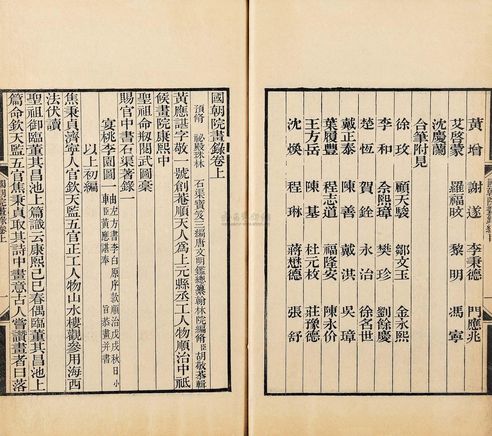 黃增 謝遂 李秉德 門應兆
艾啓蒙 羅福旼 黎明 馮寧
沈慶蘭
台筆附見
徐玫 顧天駿 鄒文玉 金永熙
李和 余熙璋 樊珍 劉餘慶
楚恆 賀銓 永治 徐名世
戴正泰 陳善 戴洪 吳璋
葉履豐 程志道 福隆安 陳永价
王方岳 陳基 杜元枝 莊豫德
沈煥 程琳 蔣懋德 張舒
國朝院畫錄卷上
預脩 祕殿珠林 石渠寶笈三編唐文明鑑總纂翰林院編脩臣胡敬恭輯
黃應諶字敬一號創菴順天人爲上元縣丞工人物順治中祗
候畫院康熙中
聖祖命擬閱武圖稾
賜官中書石渠著錄一
宴桃李園圖一 左方書李白原序款順治戊戌秋日小
臣黃應諶奉 旨恭畫并書
以上初編
焦秉貞濟寧人官欽天監五官正工人物山水樓觀參用海西
法伏讀
聖祖御臨董其昌池上篇識云康熙己巳春偶臨董其昌池上
篇命欽天監五官焦秉貞取其詩中畫意古人嘗讚畫者曰落